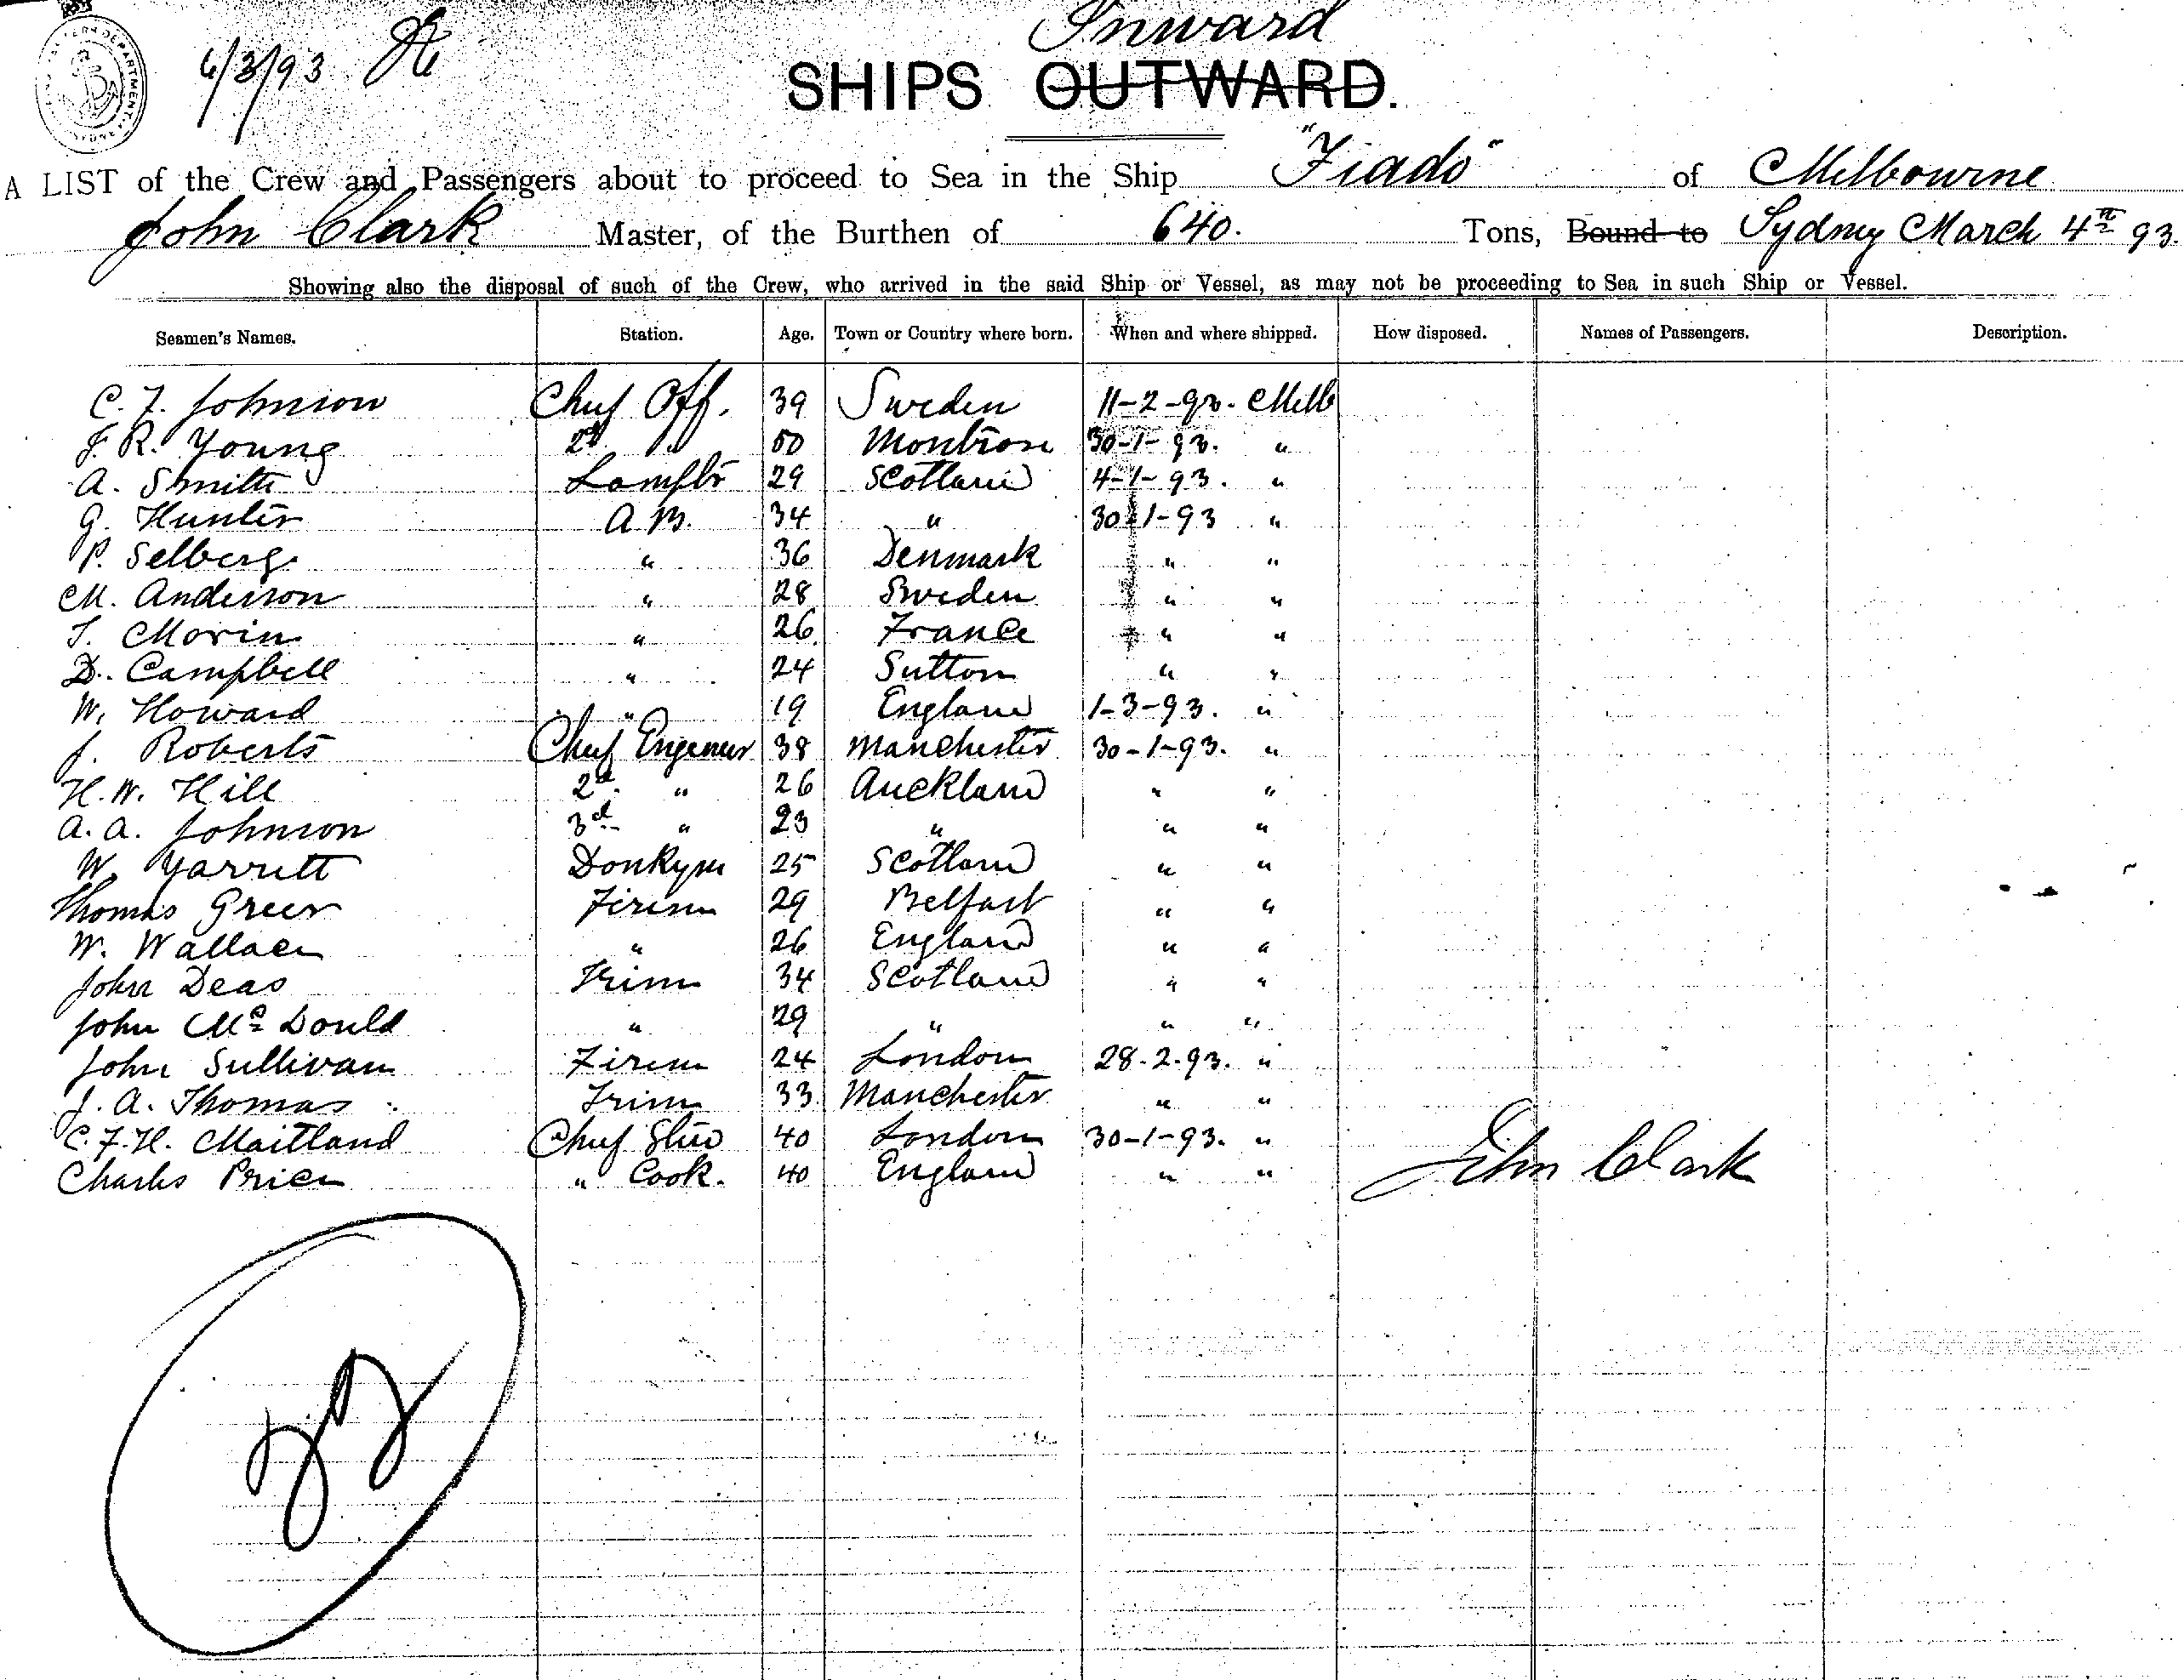 Inward
6/3/93
SHIPS OUTWARD.
A LIST of the Crew and Passengers about to proceed to Sea in the Ship "Fiado" of Melbourne
John Clark Master, of the Burthen of 640. Tons, Bound to Sydney March 4th 93.
Showing also the disposal of such of the Crew, who arrived in the said Ship or Vessel, as may not be proceeding to Sea in such Ship or Vessel.
Seamen's Names. Station. Age. Town or Country where born. When and where shipped. How disposed. Names of Passengers. Description.
C. F. Johnson Chief Off. 39 Sweden 11-2-93. Melb
F. R. Young 2d " 50 Montrose 30-1-93. "
A. Smith Lamptr 29 Scotland 4-1-93. "
G. Hunter A B. 34 " 30-1-93 "
P. Selberg " 36 Denmark " "
M. Anderson " 28 Sweden " "
T. Morin " 26 France " "
D. Campbell " 24 Sutton " "
W. Howard " 19 England 1-3-93. "
J. Roberts Chief Engeneer 38 Manchester 30-1-93. "
H. W. Hill 2d " 26 Auckland " "
A. A. Johnson 3d " 23 " " "
W. Yarrett Donkym 25 Scotland " "
Thomas Greer Firem 29 Belfast " "
W. Wallace " 26 England " "
John Deas Trim 34 Scotland " "
John Mc Donld " 29 " " "
John Sullivan Firem 24 London 28-2-93. "
J. A. Thomas Trim 33 Manchester " "
C. F. H. Maitland Chief Stew 40 London 30-1-93. "
Charles Price " Cook. 40 England " "
John Clark